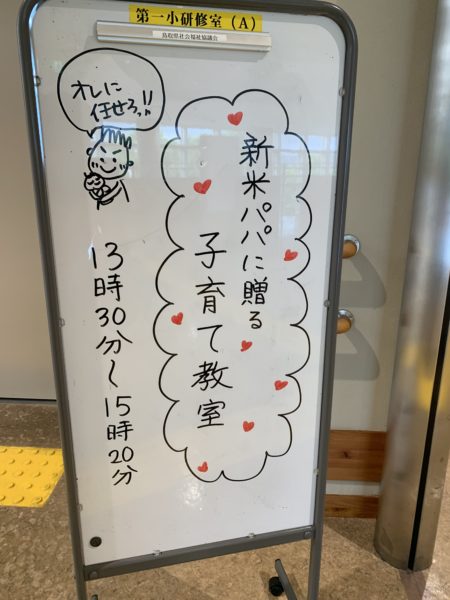 第一小研修室（A）
鳥取県社会福祉協議会
オレに
任せろっ!!
新米パパに贈る
子育て教室
13時30分〜15時20分